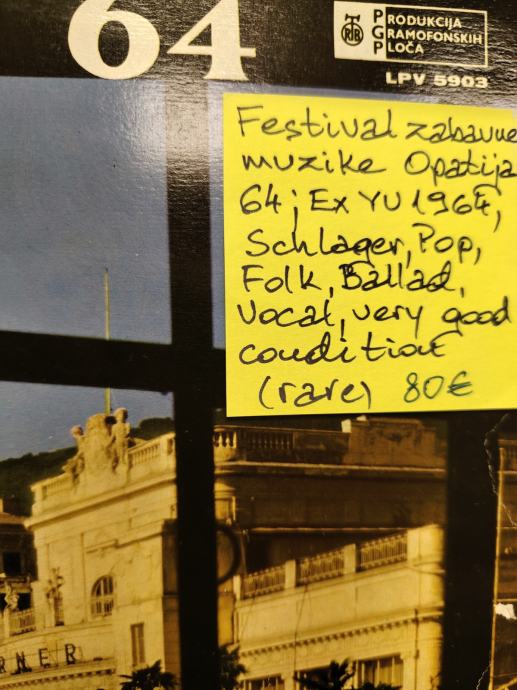 64
RTB
PGP
PRODUKCIJA
GRAMOFONSKIH
PLOČA
LPV 5903
Festival zabavne
muzike Opatija
64; Ex YU 1964,
Schlager, Pop,
Folk, Ballad,
Vocal, very good
condition
(rare) 80€
RNER